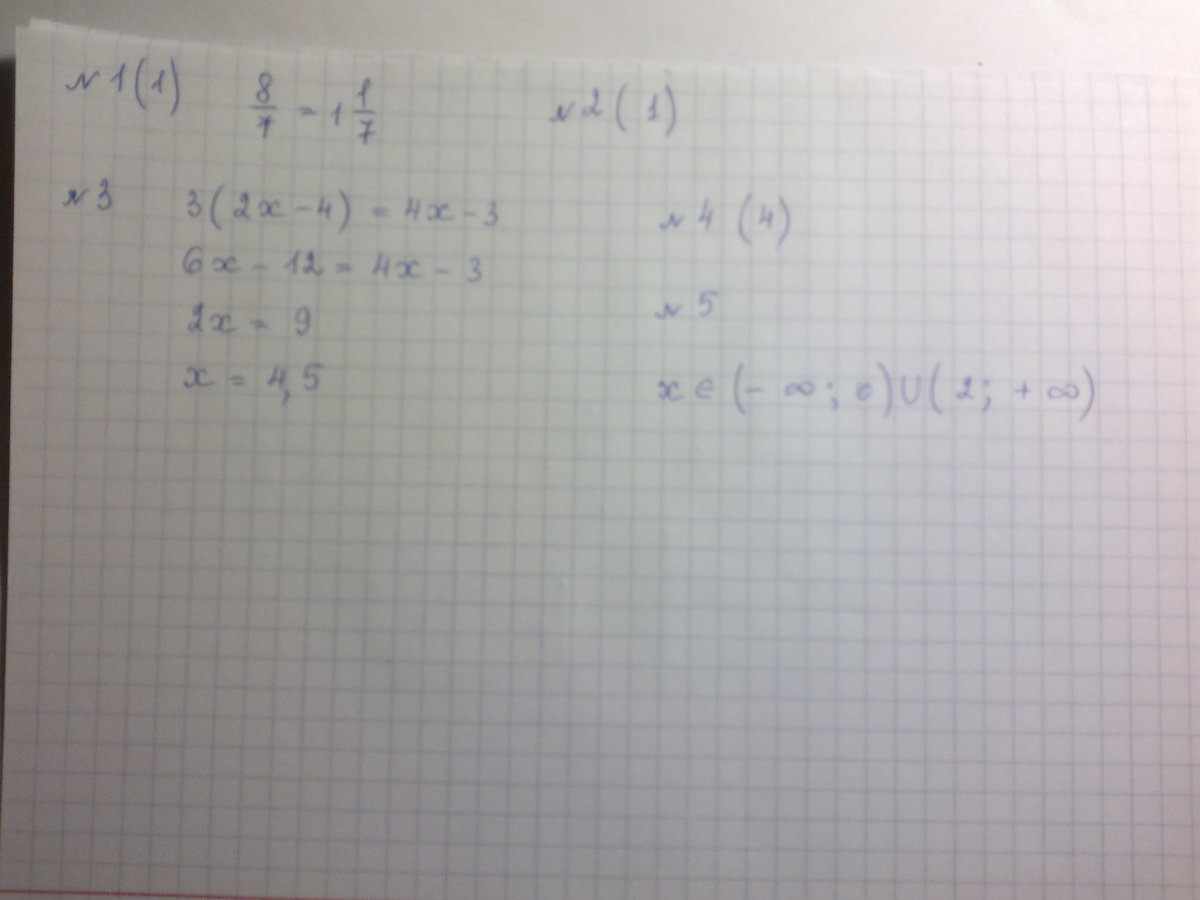 №1(1) 8/7 = 1 1/7 №2(1)
№3 3(2x-4) = 4x-3
6x - 12 = 4x - 3
2x = 9
x = 4,5
№4 (4)
№5
x ∈ (-∞; 0)∪(2; +∞)